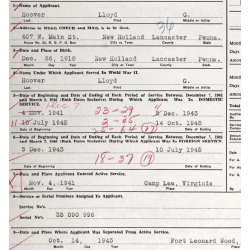 Name of Applicant.
Hoover Lloyd G.
Last First Middle or Initial
Address to WHICH CHECK and MAIL is to be Sent. 36
407 W. Main St. New Holland Lancaster Penna.
City or Town County State
Date and Place of Birth.
Dec. 26, 1918 New Holland Lancaster Penna.
Month Day Year City or Town County State
Name Under Which Applicant Served In World War II.
Hoover Lloyd G.
Last First Middle or Initial
Date of Beginning and Date of Ending of Each Period of Service Between December 7, 1941
and March 2, 1946 (Both Dates Inclusive) During Which Applicant Was In DOMESTIC
SERVICE.
Dec 7
4 Nov. 1941 23-29 2 Dec. 1943
10 July 1945 3-05 14 Oct. 1945
Date of Beginning and Date of Ending of Each Period of Service Between December 7, 1941
and March 2, 1946 (Both Dates Inclusive) During Which Applicant Was In FOREIGN
SERVICE.
3 Dec. 1943 10 July 1945
18-37 19
Date and Place Applicant Entered Active Service.
Nov. 4, 1941 Camp Lee, Virginia
Service or Serial Numbers Assigned To Applicant.
Serial No. 33 090 996
Service No.
Date and Place Where Applicant Was Separated From Active Service.
Oct. 14, 1945 Fort Leonard Wood,